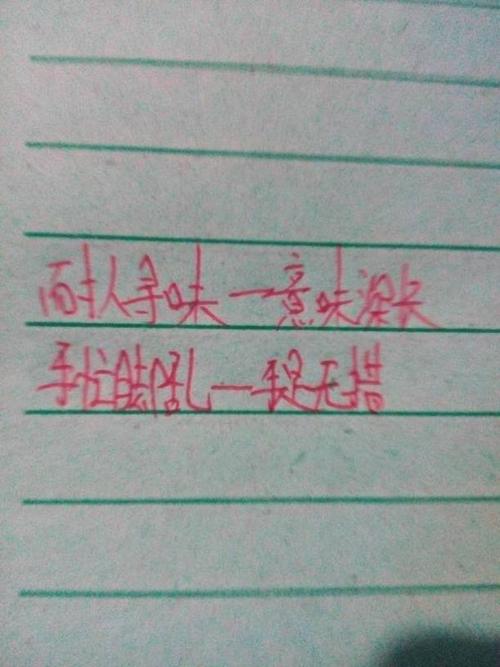 耐人寻味—意味深长
手忙脚乱—手足无措